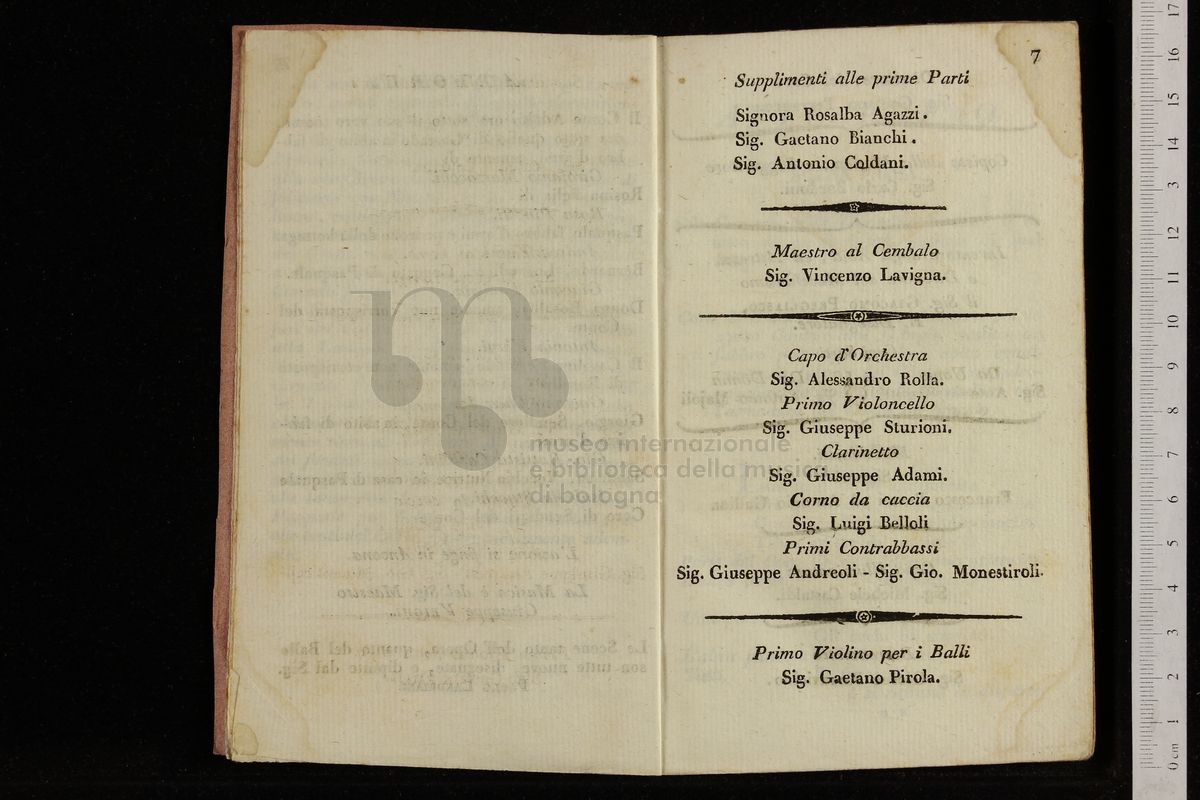 7
Supplimenti alle prime Parti
Signora Rosalba Agazzi.
Sig. Gaetano Bianchi.
Sig. Antonio Coldani.
Maestro al Cembalo
Sig. Vincenzo Lavigna.
Capo d'Orchestra
Sig. Alessandro Rolla.
Primo Violoncello
Sig. Giuseppe Sturioni.
Clarinetto
Sig. Giuseppe Adami.
Corno da caccia
Sig. Luigi Belloli
Primi Contrabbassi
Sig. Giuseppe Andreoli - Sig. Gio. Monestiroli.
Primo Violino per i Balli
Sig. Gaetano Pirola.
museo internazionale
e biblioteca della musica
di bologna
0 cm 1 2 3 4 5 6 7 8 9 10 11 12 13 14 15 16 17